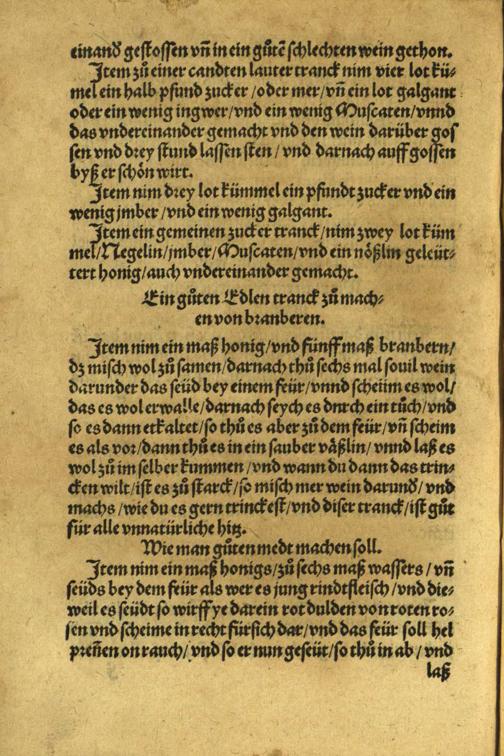 einand̕ gestossen vñ in ein gůtẽ schlechten wein gethon.
Item zů einer candten lauter tranck nim vier lot kü-
mel ein halb pfund zucker / oder mer / vñ ein lot galgant
oder ein wenig ingwer / vnd ein wenig Muscaten / vnnd
das vndereinander gemacht vnd den wein darüber gos
sen vnd drey stund lassen sten / vnd darnach auff gossen
byß er schön wirt.
Item nim drey lot kümmel ein pfundt zucker vnd ein
wenig jmber / vnd ein wenig galgant.
Item ein gemeinen zucker tranck / nim zwey lot küm
mel / Negelin / jmber / Muscaten / vnd ein nößlin geleüt-
tert honig / auch vndereinander gemacht.
Ein gůten Edlen tranck zů mach-
en von branberen.
Item nim ein maß honig / vnd fünff maß branbern /
dz misch wol zů samen / darnach thů sechs mal souil wein
darunder das seüd bey einem feür / vnnd scheim es wol /
das es wol erwalle / darnach seych es dnrch ein tůch / vnd
so es dann etkaltet / so thů es aber zů dem feür / vñ scheim
es als vor / dann thů es in ein sauber väßlin / vnnd laß es
wol zů im selber kummen / vnd wann du dann das trin-
cken wilt / ist es zů starck / so misch mer wein darund̕ / vnd
machs / wie du es gern trinckest / vnd diser tranck / ist gůt
für alle vnnatürliche hitz.
Wie man gůten medt machen soll.
Item nim ein maß honigs / zů sechs maß wassers / vñ
seüds bey dem feür als wer es jung rindtfleisch / vnd die-
weil es seüdt so wirff ye darein rot dulden von roten ro-
sen vnd scheime in recht fürsich dar / vnd das feür soll hel
preñen on rauch / vnd so er nun geseüt / so thů in ab / vnd
laß